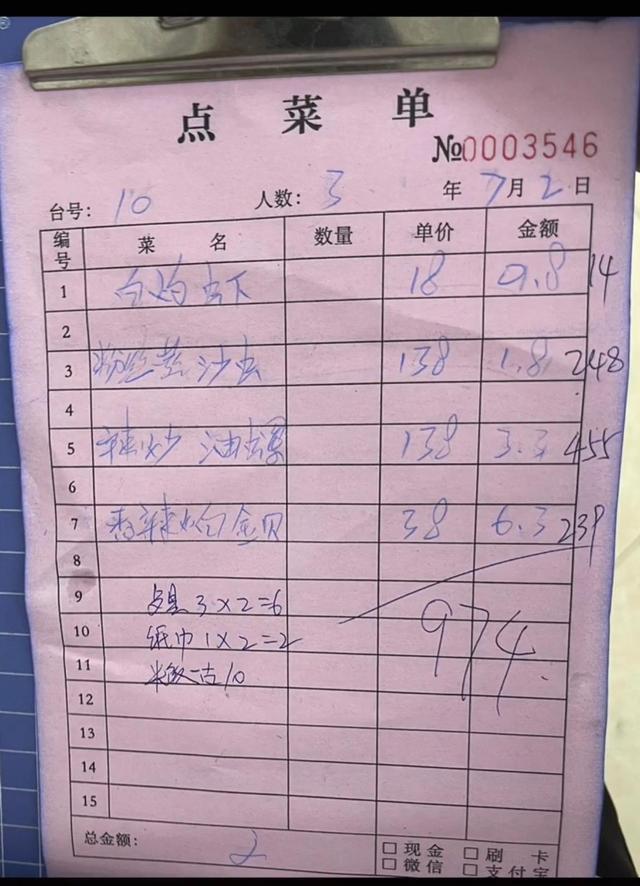 点菜单
№0003546
台号: 10 人数: 3 年 7月2日
编号 菜名 数量 单价 金额
1 白灼虫下 18 0.8 14
2
3 粉丝蒸沙虫 138 1.8 248
4
5 辣炒油螺 138 3.3 455
6
7 香辣火勺金贝 38 6.3 239
8
9 3×2=6
10 纸巾1×2=2
974
11 米饭一古10
12
13
14
15
总金额: 2
□现金 □刷卡
□微信 □支付宝